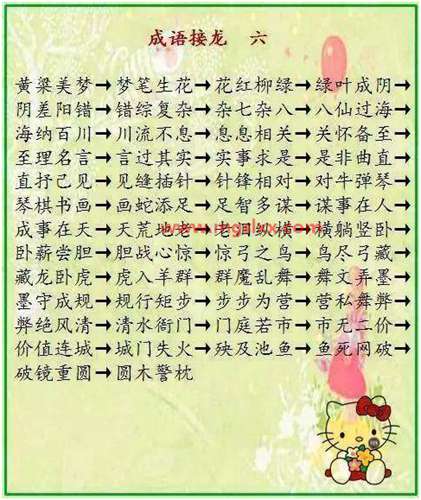 成语接龙 六
黄粱美梦→梦笔生花→花红柳绿→绿叶成阴→
阴差阳错→错综复杂→杂七杂八→八仙过海→
海纳百川→川流不息→息息相关→关怀备至→
至理名言→言过其实→实事求是→是非曲直→
直抒己见→见缝插针→针锋相对→对牛弹琴→
琴棋书画→画蛇添足→足智多谋→谋事在人→
成事在天→天荒地老→老
横躺竖卧→
卧薪尝胆→胆战心惊→惊弓之鸟→鸟尽弓藏→
藏龙卧虎→虎入羊群→群魔乱舞→舞文弄墨→
墨守成规→规行矩步→步步为营→营私舞弊→
弊绝风清→清水衙门→门庭若市→市无二价→
价值连城→城门失火→殃及池鱼→鱼死网破→
破镜重圆→圆木警枕